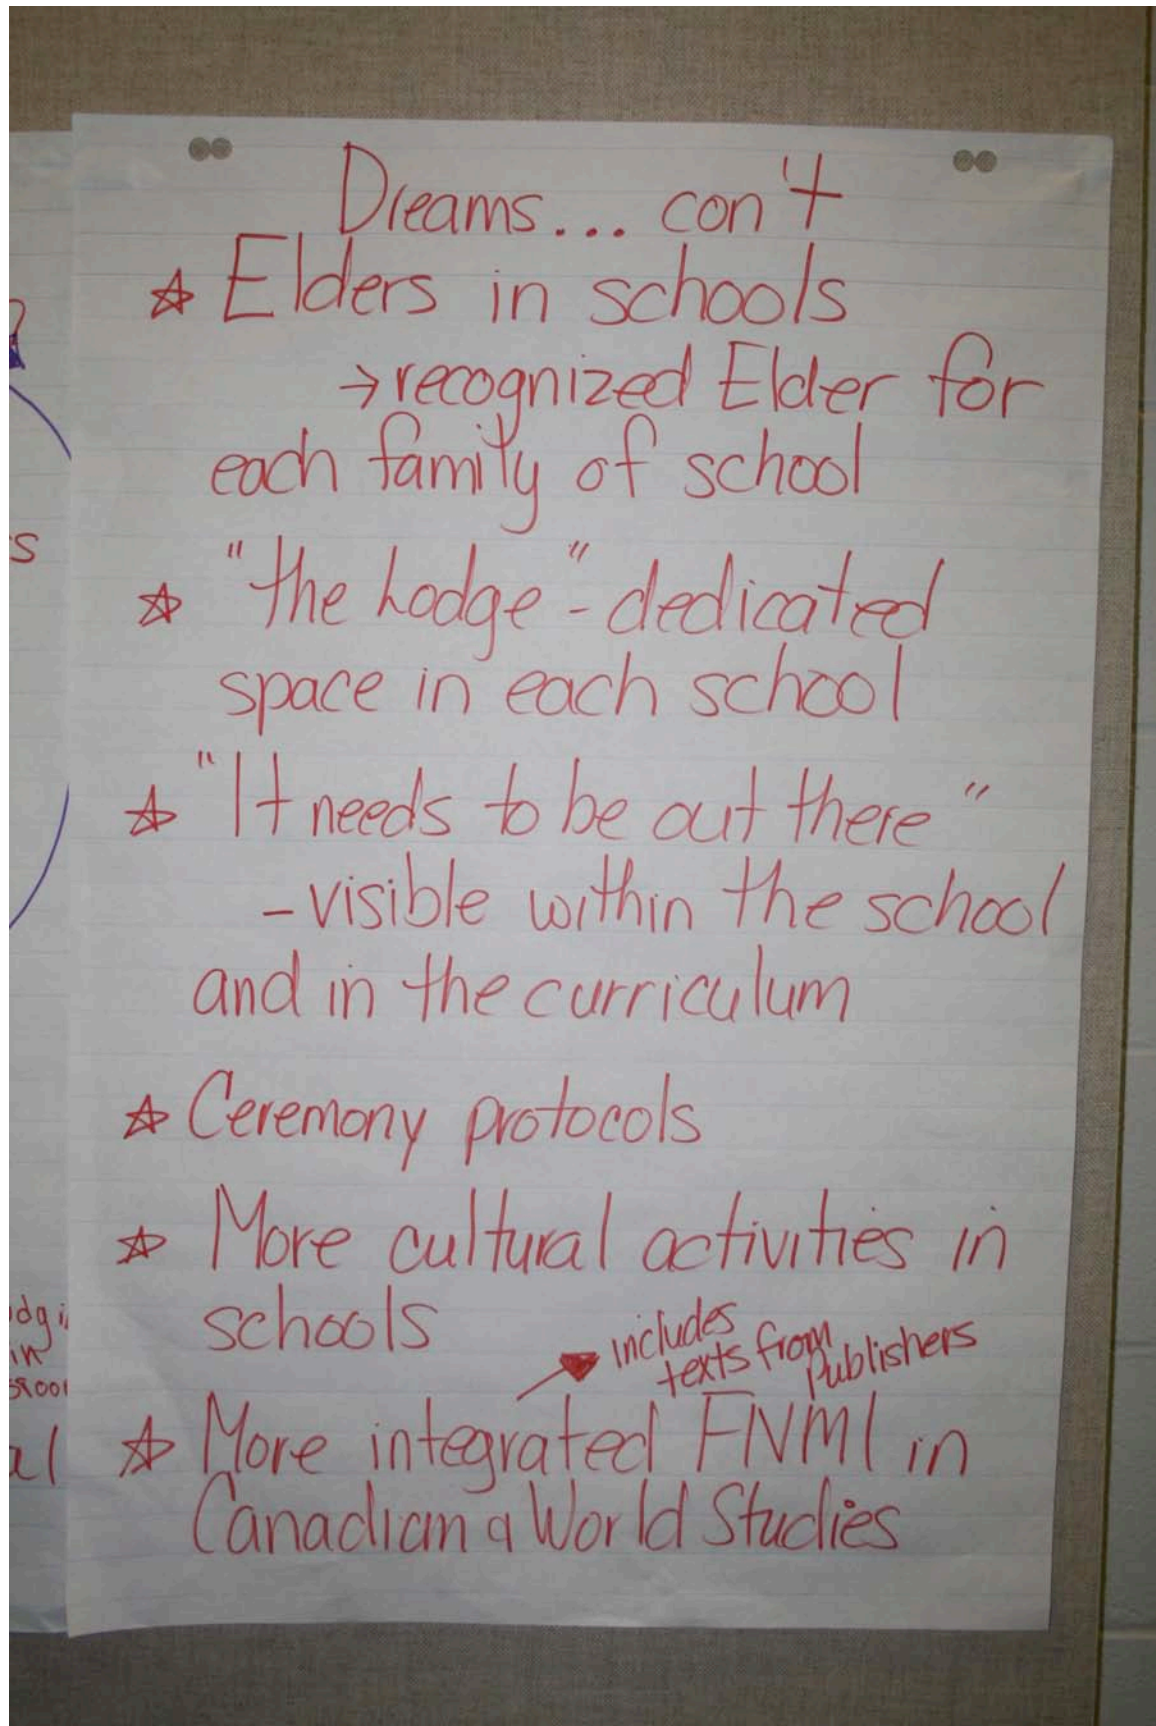 Dreams... con't
☆ Elders in schools
→ recognized Elder for
each family of school
☆ "the Lodge" - dedicated
space in each school
☆ "It needs to be out there"
- visible within the school
and in the curriculum
☆ Ceremony protocols
☆ More cultural activities in
schools
includes
texts from Publishers
☆ More integrated FNMI in
Canadian & World Studies